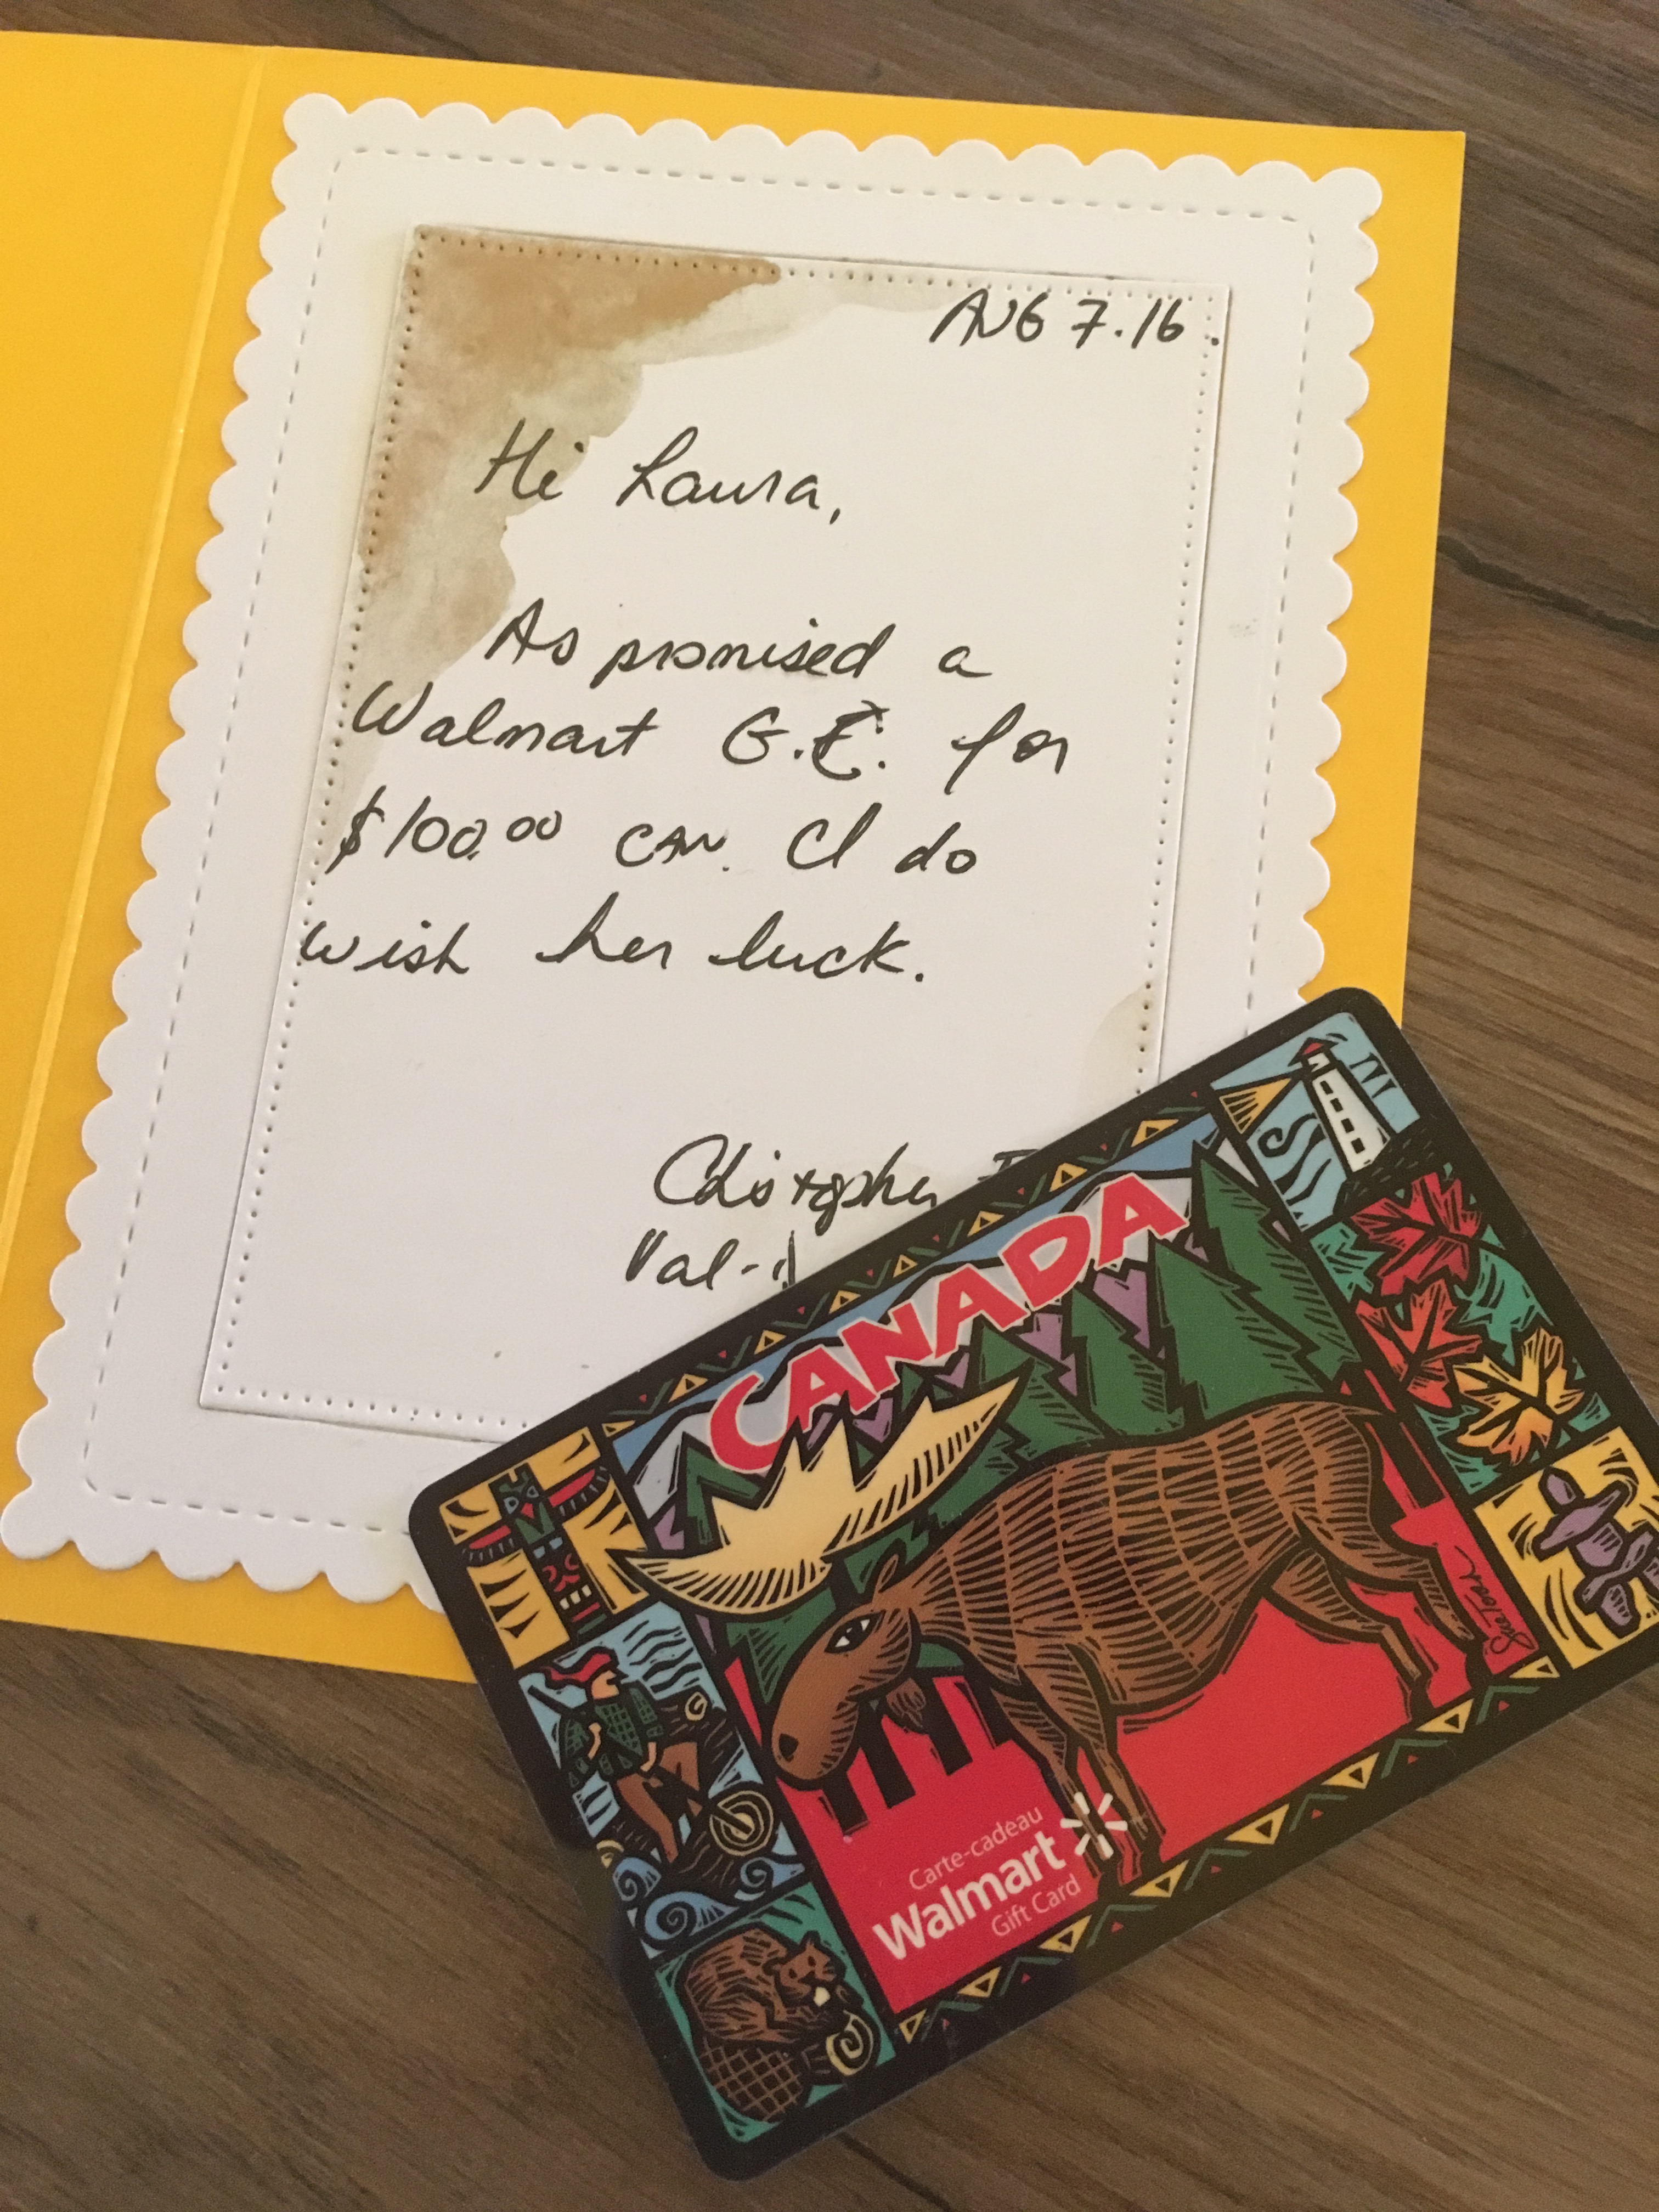 AUG 7.16.
Hi Laura,
As promised a
Walmart G.C. for
$100.00 CAN. I do
wish her luck.
Christopher
Val-d
CANADA
Carte-cadeau
Walmart
Gift Card